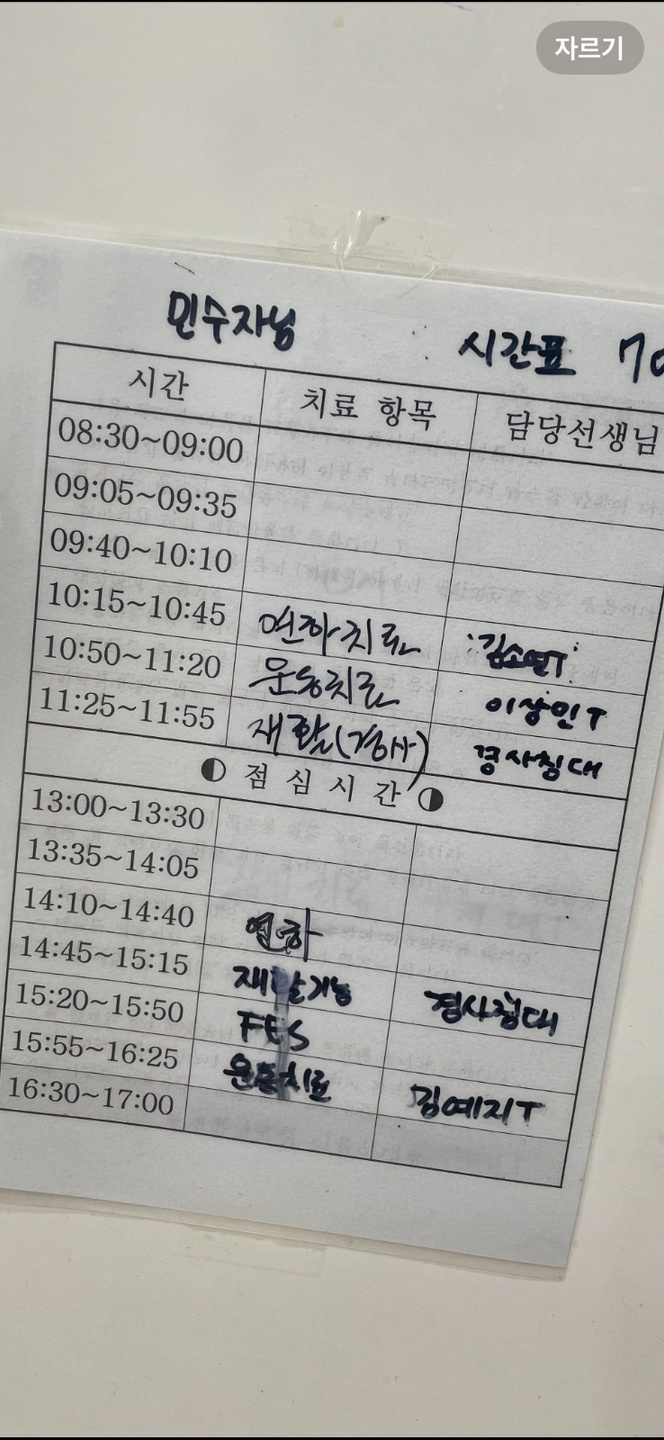 자르기
민수자님 시간표 70
시간 치료 항목 담당선생님
08:30~09:00
09:05~09:35
09:40~10:10
10:15~10:45 연하치료 김소연T
10:50~11:20 운동치료 이상민T
11:25~11:55 재활(경사) 경사침대
점심시간
13:00~13:30
13:35~14:05
14:10~14:40 연하
14:45~15:15 재활기능 경사침대
15:20~15:50 FES
15:55~16:25 운동치료 김예지T
16:30~17:00